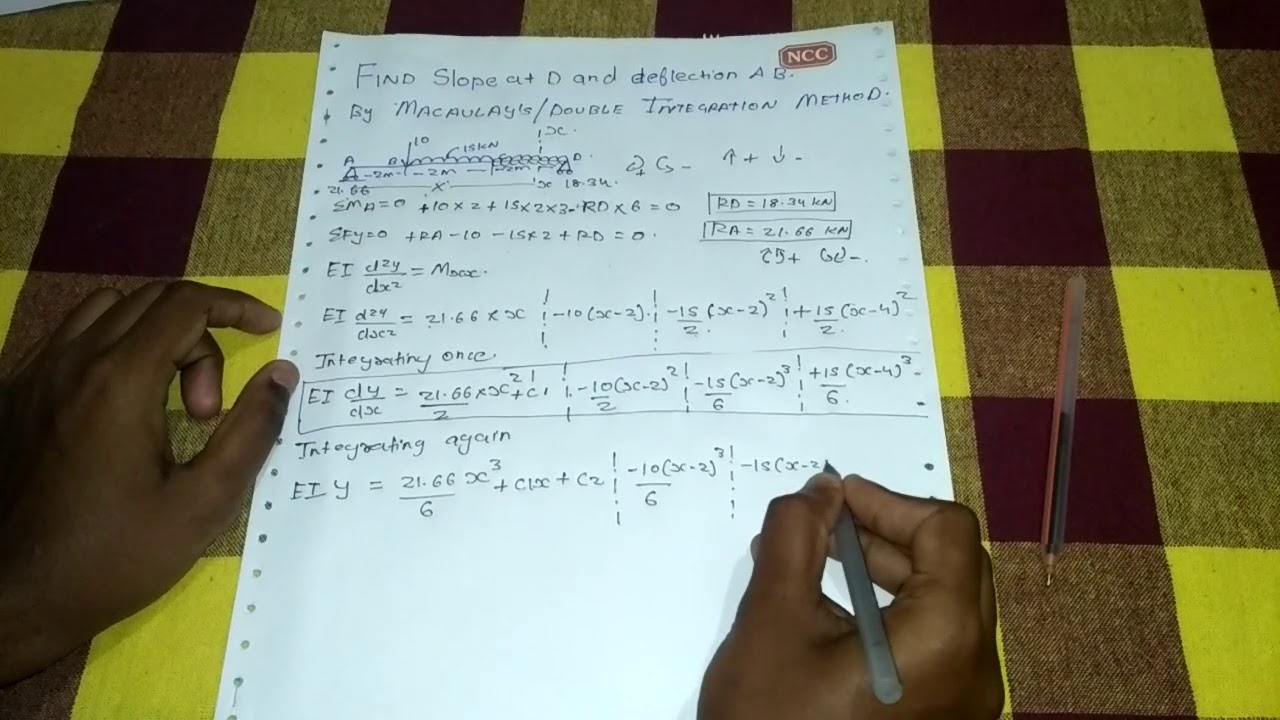 NCC
FIND Slope at D and deflection A B.
By MACAULAY'S/DOUBLE INTEGRATION METHOD.
x.
10
15KN
A B C D.
-2m- -2m- -2m-
21.66 X x 18.34.
+ - ↑+ ↓-
ΣMA=0 +10×2+15×2×3-RD×6=0 RD=18.34 KN
ΣFy=0 +RA-10-15×2+RD=0. RA=21.66 KN
EI d²y/dx² = Mxx.
EI d²y/dx² = 21.66×x ¦ -10(x-2). ¦ -15/2(x-2)² ¦ +15/2(x-4)²
Integrating once.
EI dy/dx = 21.66/2×x²+C1 ¦ -10/2(x-2)² ¦ -15/6(x-2)³ ¦ +15/6(x-4)³
Integrating again
EI y = 21.66/6 x³+C1x+C2 ¦ -10/6(x-2)³ ¦ -15(x-2